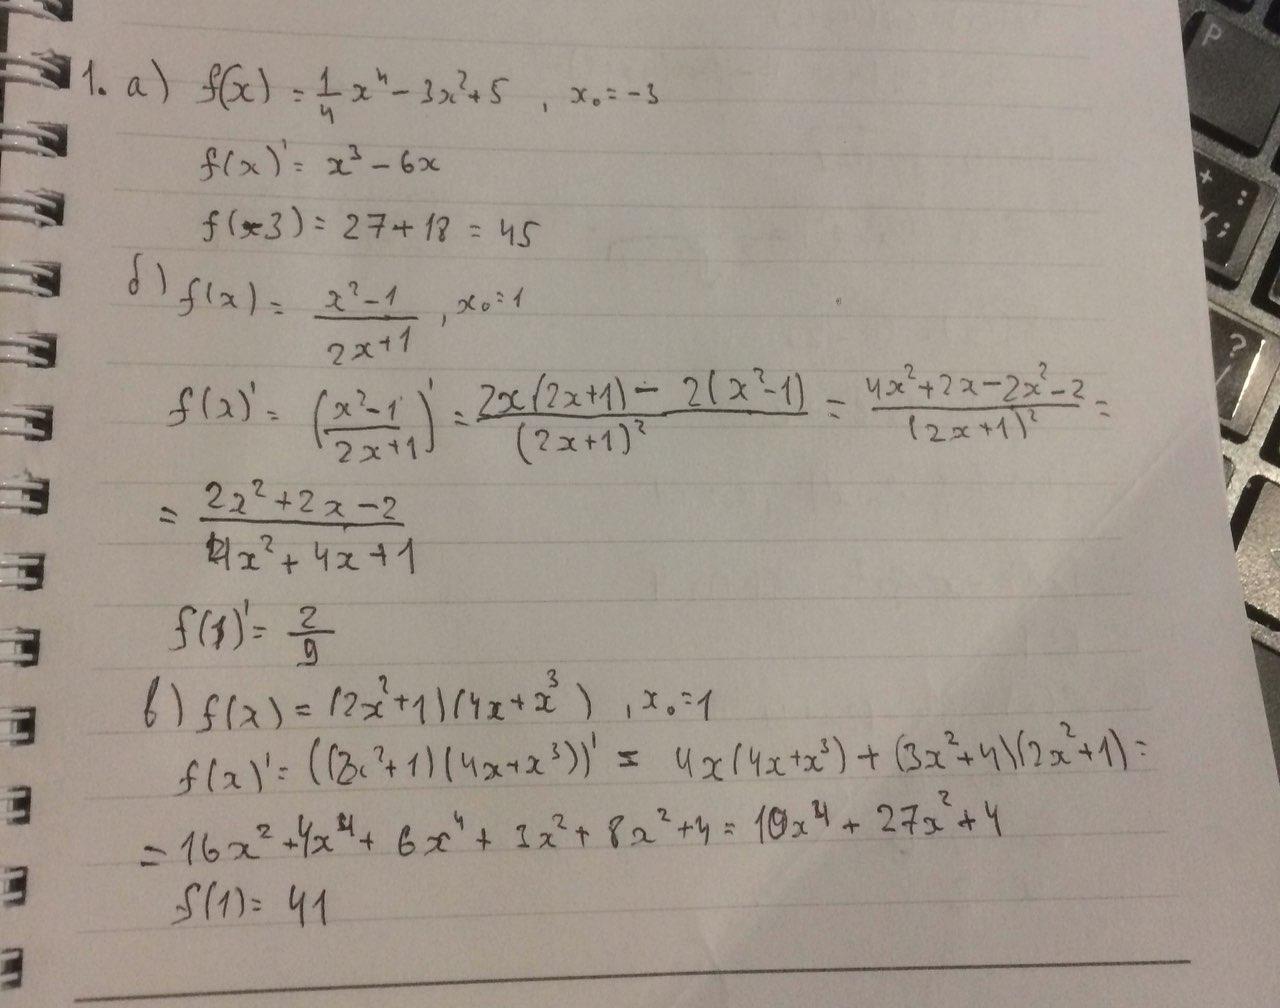 1. а) f(x) = 1/4 x⁴ - 3x² + 5 , x₀ = -3
f(x)' = x³ - 6x
f(-3) = 27 + 18 = 45
б) f(x) = (x² - 1)/(2x + 1) , x₀ = 1
f(x)' = ((x² - 1)/(2x + 1))' = (2x(2x + 1) - 2(x² - 1))/(2x + 1)² = (4x² + 2x - 2x² - 2)/(2x + 1)² =
= (2x² + 2x - 2)/(4x² + 4x + 1)
f(1)' = 2/9
в) f(x) = (2x² + 1)(4x + x³) , x₀ = 1
f(x)' = ((2x² + 1)(4x + x³))' = 4x(4x + x³) + (3x² + 4)(2x² + 1) =
= 16x² + 4x⁴ + 6x⁴ + 3x² + 8x² + 4 = 10x⁴ + 27x² + 4
f(1) = 41
P
+ :
;
?
/